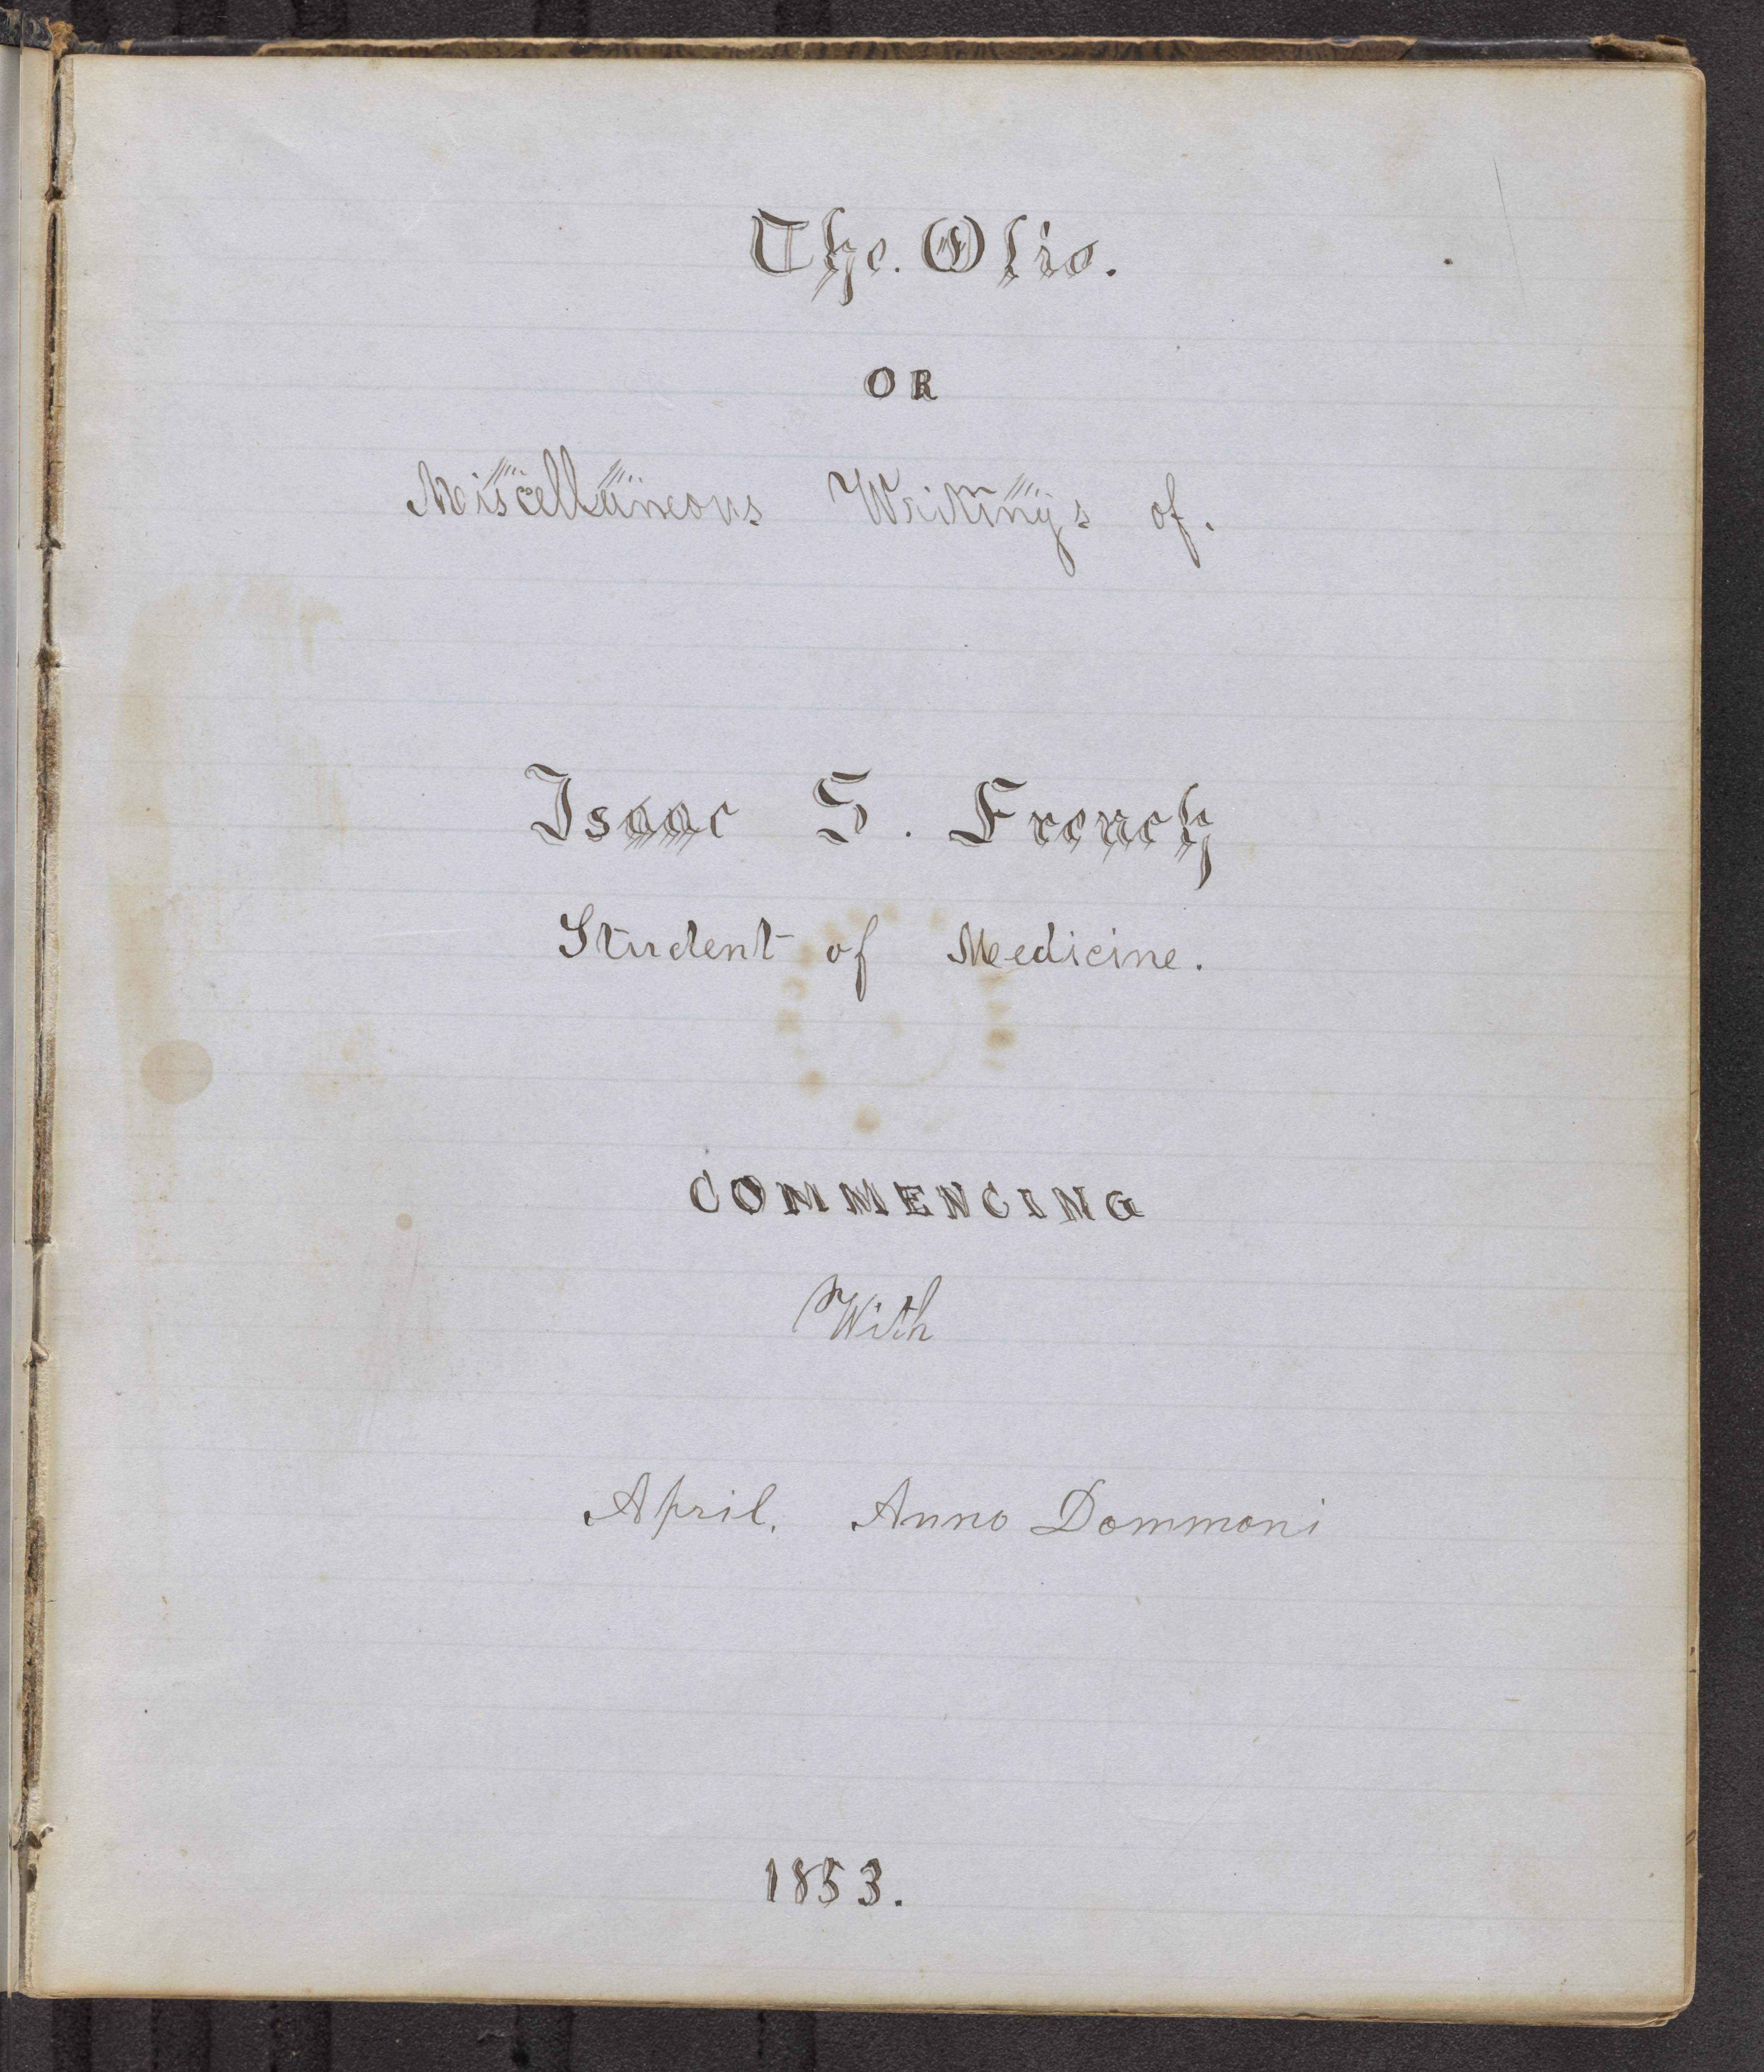 The. Olio.
OR
Miscellaneous Writings of.
Isaac S. French
Student of Medicine.
COMMENCING
With
April. Anno Dommoni
1853.